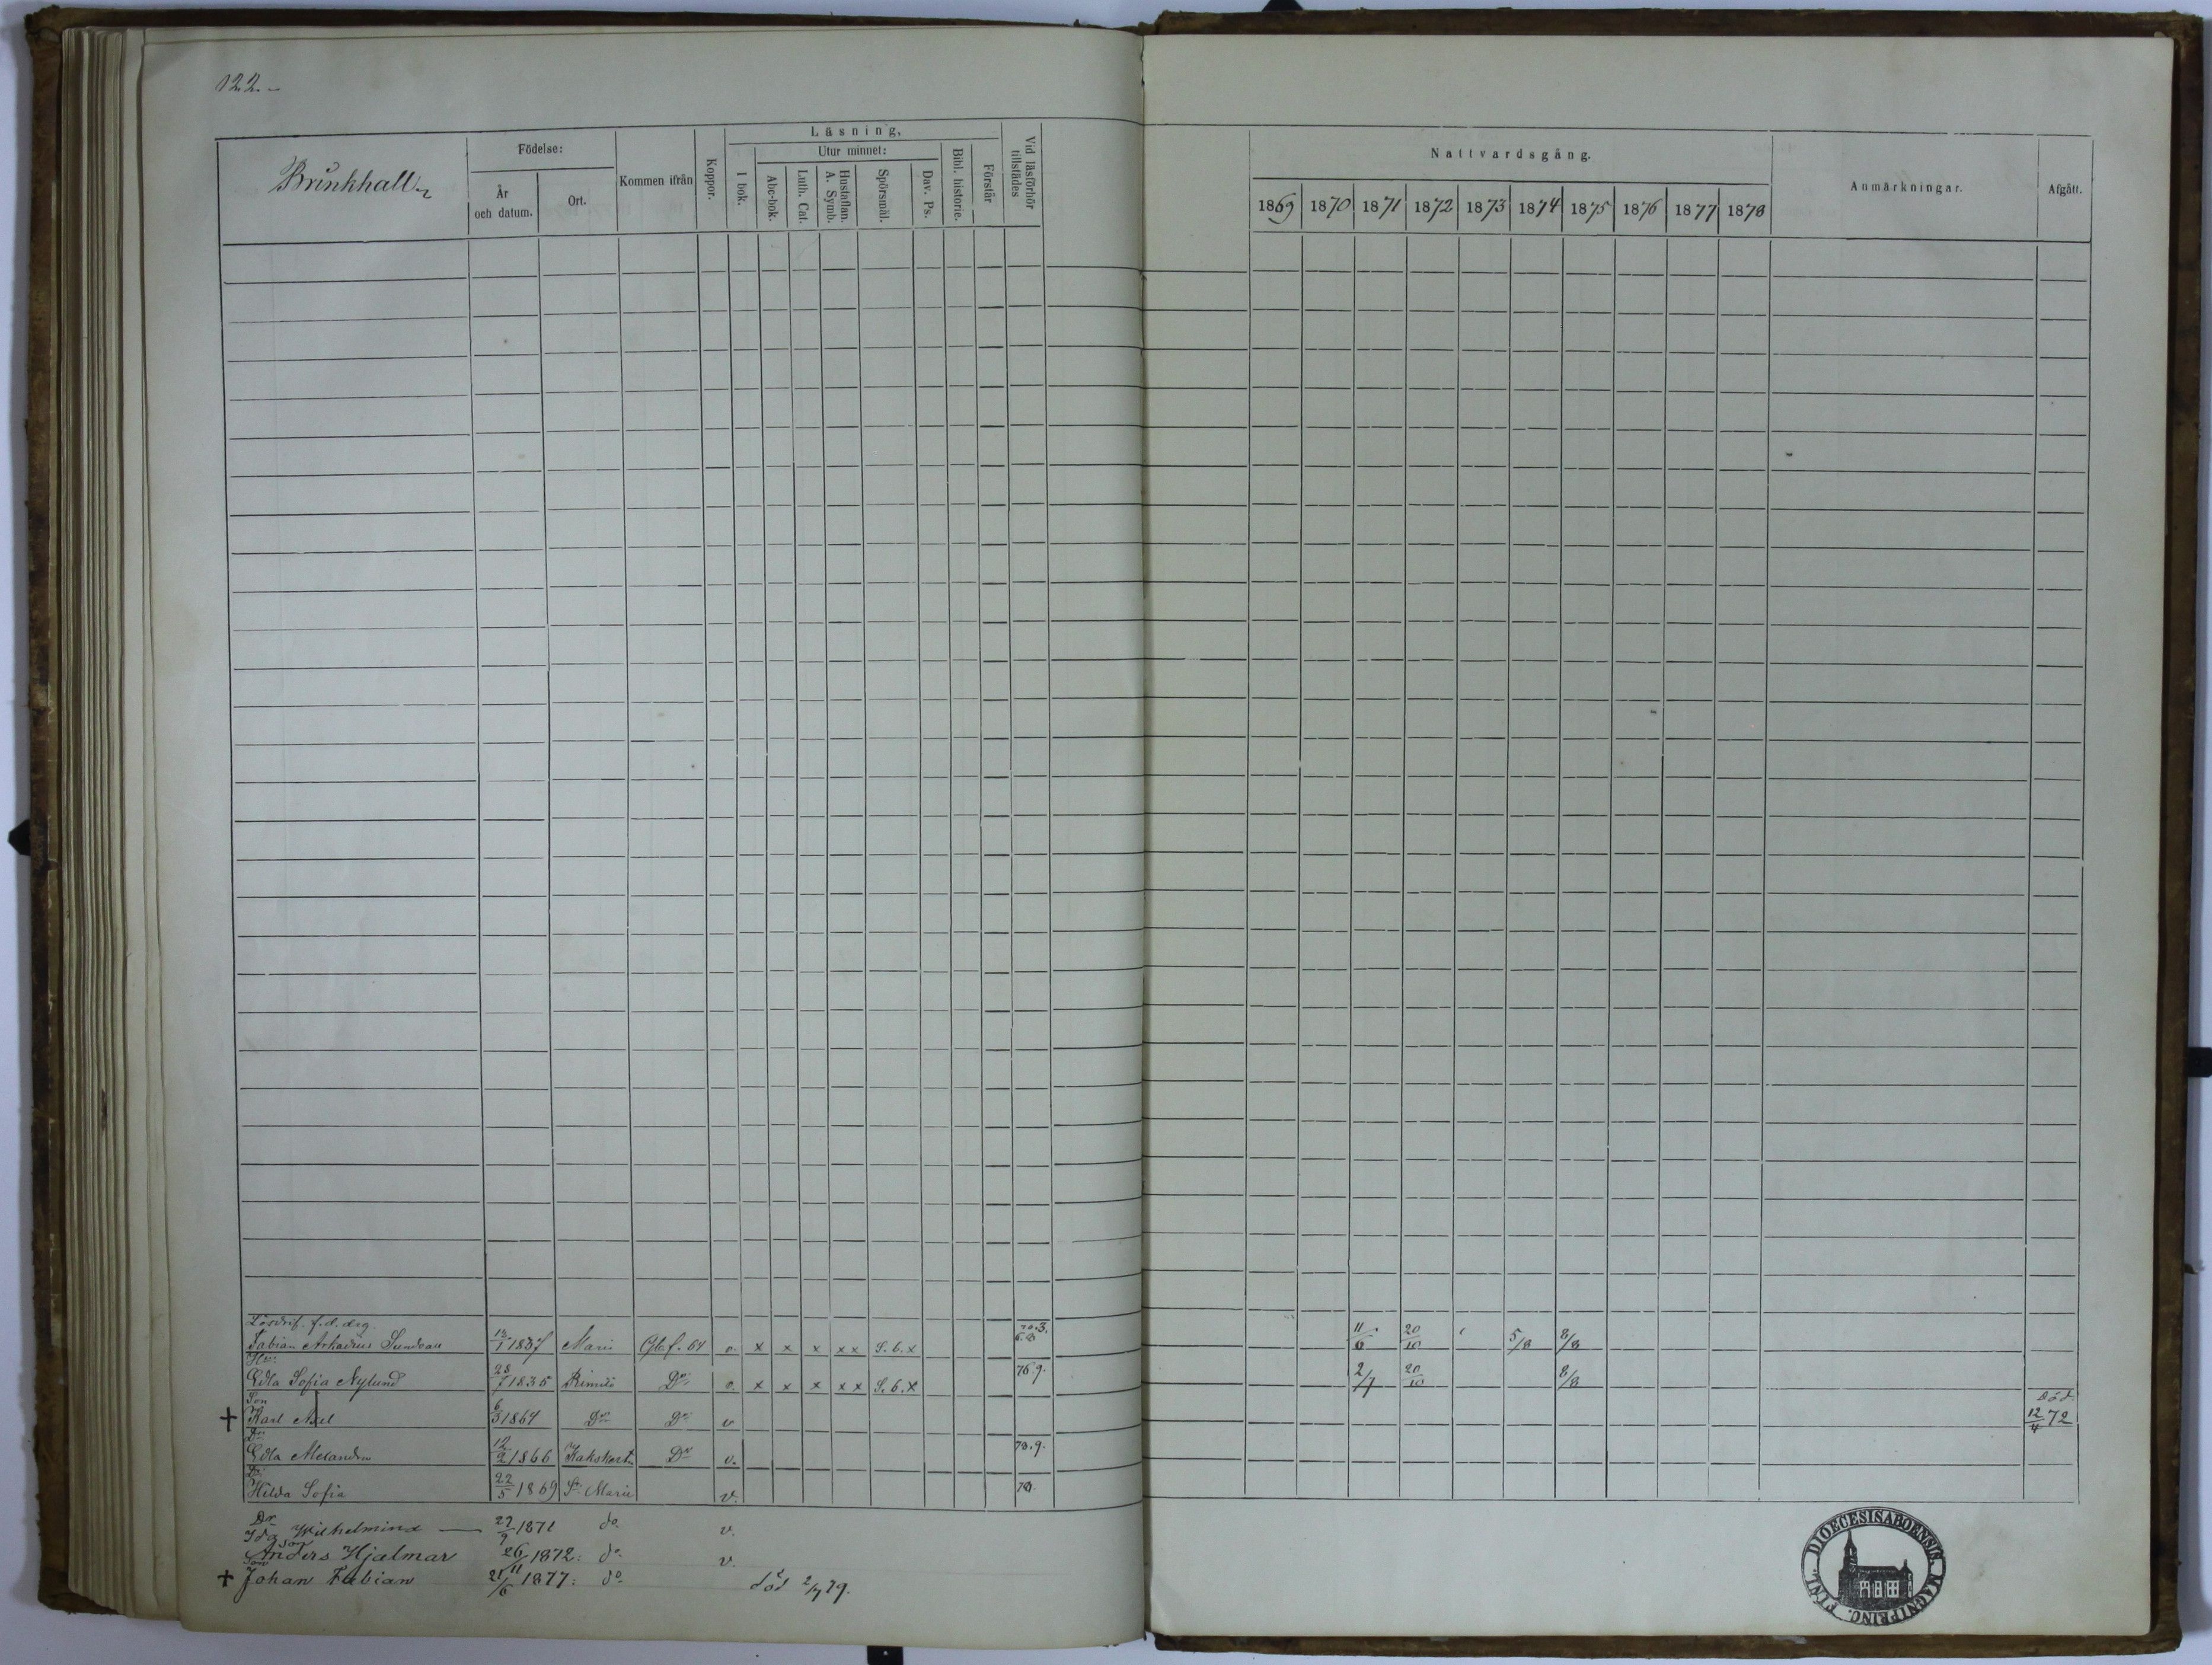 122.
Brinkhall
Födelse:
År och datum.
Ort.
Kommen ifrån
Koppor.
Läsning,
I bok.
Utur minnet:
Abc-bok.
Luth. Cat.
Hustaflan. A. Symb.
Spörsmål.
Dav. Ps.
Bibl. historie.
Förstår
Vid läsförhör tillstädes
Nattvardsgång.
1869 1870 1871 1872 1873 1874 1875 1876 1877 1878
Anmärkningar.
Afgått.
Fabian Arkadius 13/1 Marie Gbf. 64 v. x x x x x S. 6. x 11/6 20/10 5/8 8/8
Hu:
Edla Sofia Nylund 28/7 1835 Rimito Do v. x x x x x S. 6. x 76.9. 2/7 20/10 8/8
Son
† Karl Axel 6/3 1864 Do Do v Död 12/4 72
Dr
Edla Alexandra 12/2 1866 Kakskerta Do v. 78.9.
Dr
Hilda Sofia 22/5 1869 St Marie v. 78.
Dr
Ida Wilhelmina 22/9 1871 do v.
Son
Anders Hjalmar 26/11 1872: do v.
Son
† Johan Fabian 21/6 1877: do död 2/7 79.
DIOECESIS ABOENSIS. MAGNI PRINC. FINL.